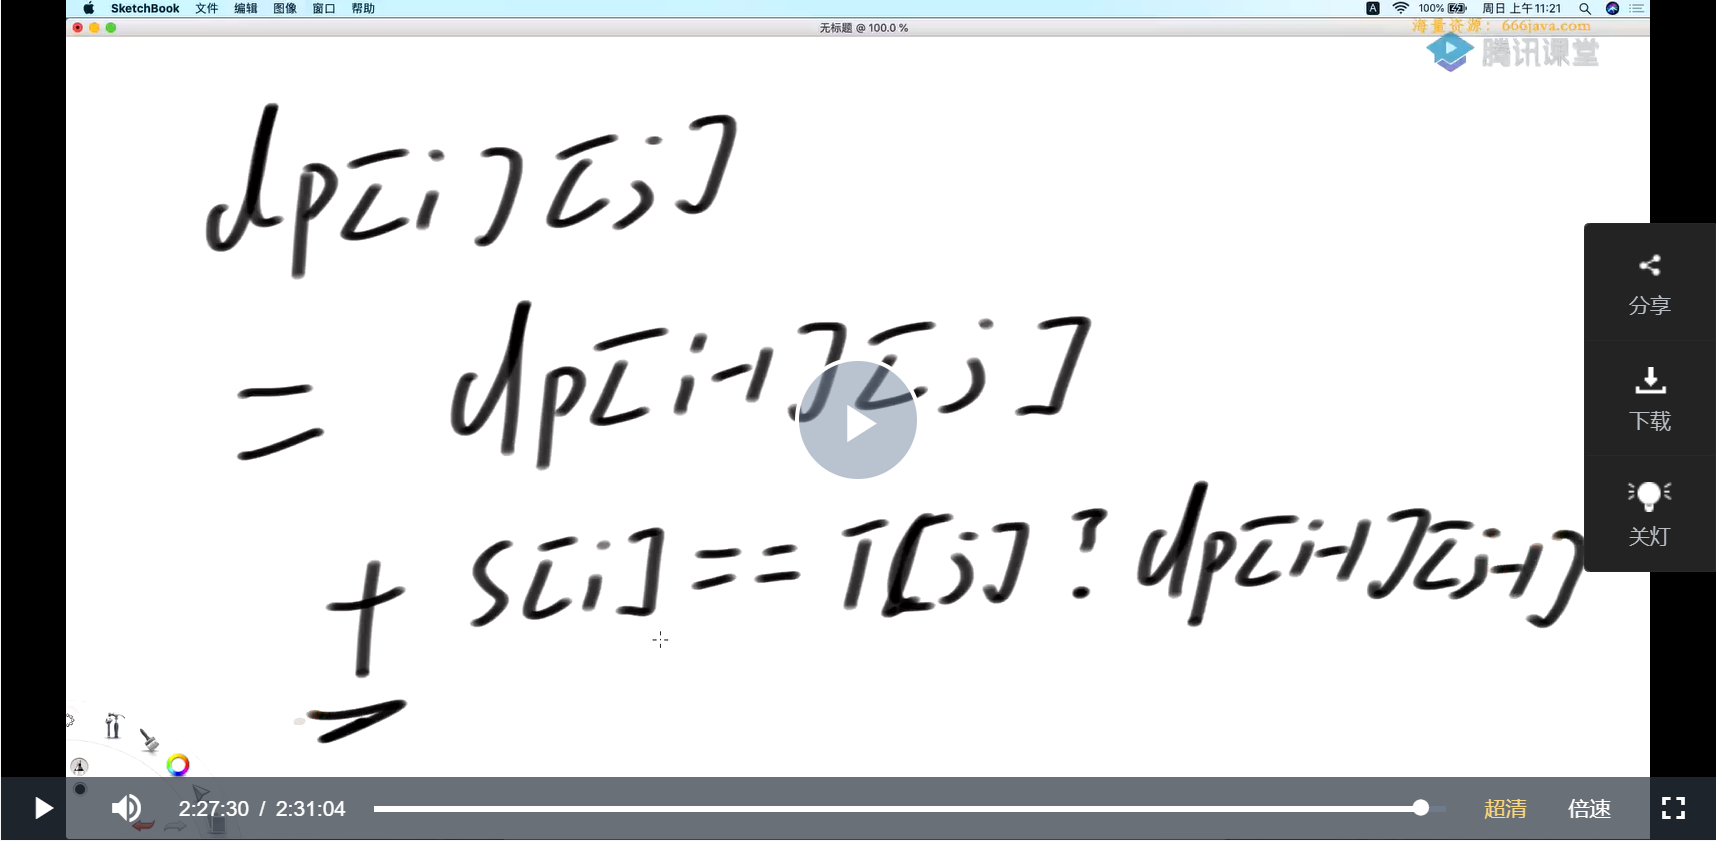 SketchBook 文件 编辑 图像 窗口 帮助 A 100% 周日 上午11:21
无标题 @ 100.0 %
海量资源：666java.com
腾讯课堂
dp[i][j]
= dp[i-1][j]
+ s[i] == T[j] ? dp[i-1][j-1]
分享
下载
关灯
2:27:30 / 2:31:04 超清 倍速